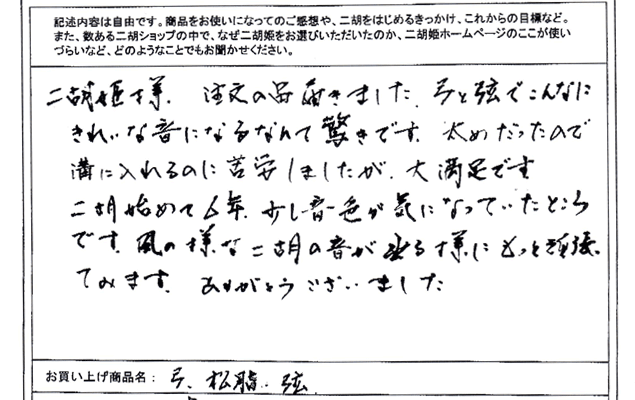 記述内容は自由です。商品をお使いになってのご感想や、二胡をはじめるきっかけ、これからの目標など。
また、数ある二胡ショップの中で、なぜ二胡姫をお選びいただいたのか、二胡姫ホームページのここが使い
づらいなど、どのようなことでもお聞かせください。
二胡姫様. 注文の品届きました. 弓と弦でこんなに
きれいな音になるなんて驚きです. 太めだったので
溝に入れるのに苦労しましたが、大満足です
二胡始めて6年. 少し音色が気になっていたところ
です. 風の様な二胡の音が出る様にもっと頑張っ
てみます. ありがとうございました
お買い上げ商品名: 弓、松脂. 弦